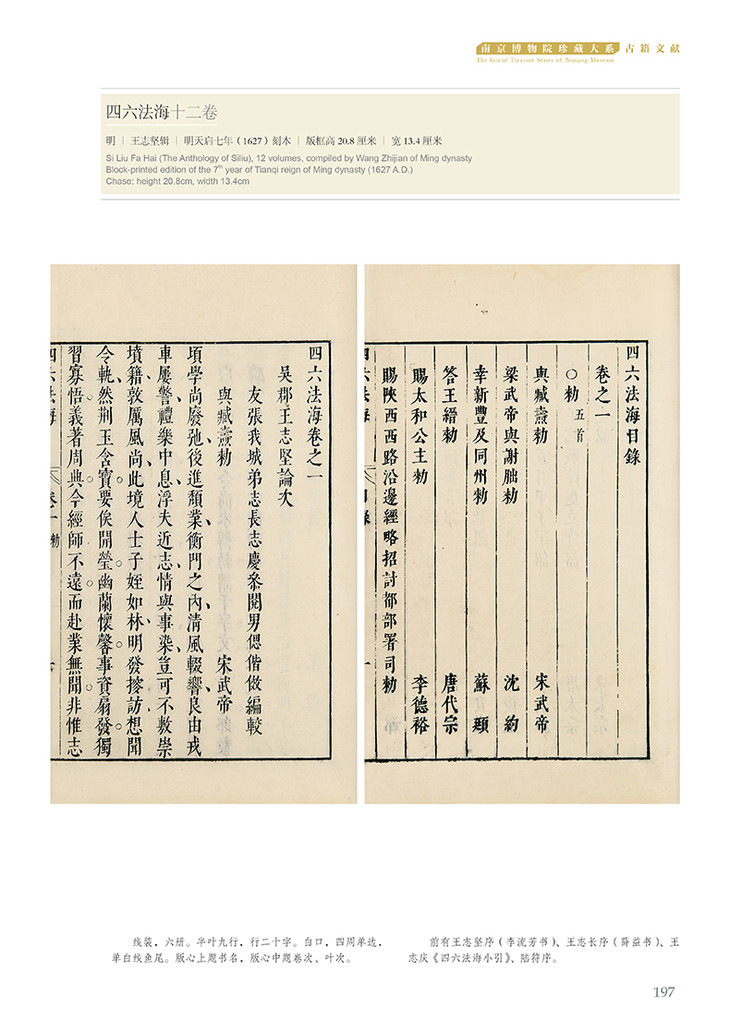 南京博物院珍藏大系 古籍文献
The Grand Treasure Series of Nanjing Museum
四六法海十二卷
明 | 王志坚辑 | 明天启七年（1627）刻本 | 版框高 20.8 厘米 | 宽 13.4 厘米
Si Liu Fa Hai (The Anthology of Siliu), 12 volumes, compiled by Wang Zhijian of Ming dynasty
Block-printed edition of the 7th year of Tianqi reign of Ming dynasty (1627 A.D.)
Chase: height 20.8cm, width 13.4cm
四六法海目錄
卷之一
○勅 五首
與臧燾勅 宋武帝
梁武帝與謝朏勅 沈約
幸新豐及同州勅 蘇頲
答王縉勅 唐代宗
賜太和公主勅 李德裕
賜陝西西路沿邊經略招討都部署司勅
四六法海 目錄 一
四六法海卷之一
吳郡王志堅論次
友張我城弟志長志慶參閱男偲偕倣編較
與臧燾勅 宋武帝
頃學尚廢弛後進頹業衡門之內清風輟響良由戎
車屢警禮樂中息浮夫近志情與事染豈可不敷崇
墳籍敦厲風尚此境人士子姪如林明發搜訪想聞
令軌然荆玉含寶要俟開瑩幽蘭懷馨事資扇發獨
習寡悟義著周典今經師不遠而赴業無聞非惟志
四六法海 卷一 勅
线装，六册。半叶九行，行二十字。白口，四周单边，
单白线鱼尾。版心上题书名，版心中题卷次、叶次。
前有王志坚序（李流芳书）、王志长序（薛益书）、王
志庆《四六法海小引》、陆符序。
197